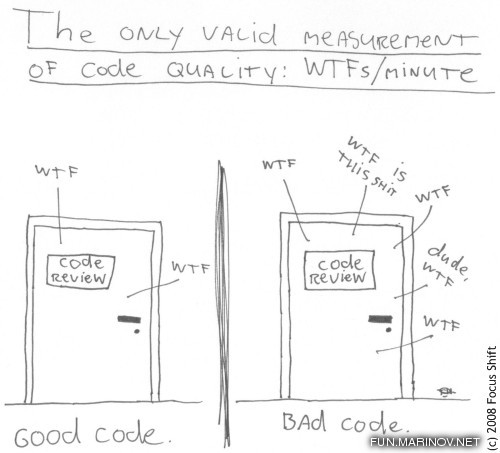 The ONLY VALID MEASUREMENT
OF CODE QUALITY: WTFs/MINUTE
WTF
CODE
REVIEW
WTF
GOOD CODE.
WTF
WTF IS
THIS SHIT
WTF
CODE
REVIEW
dude,
WTF
WTF
BAD CODE.
(c) 2008 Focus Shift
FUN.MARINOV.NET